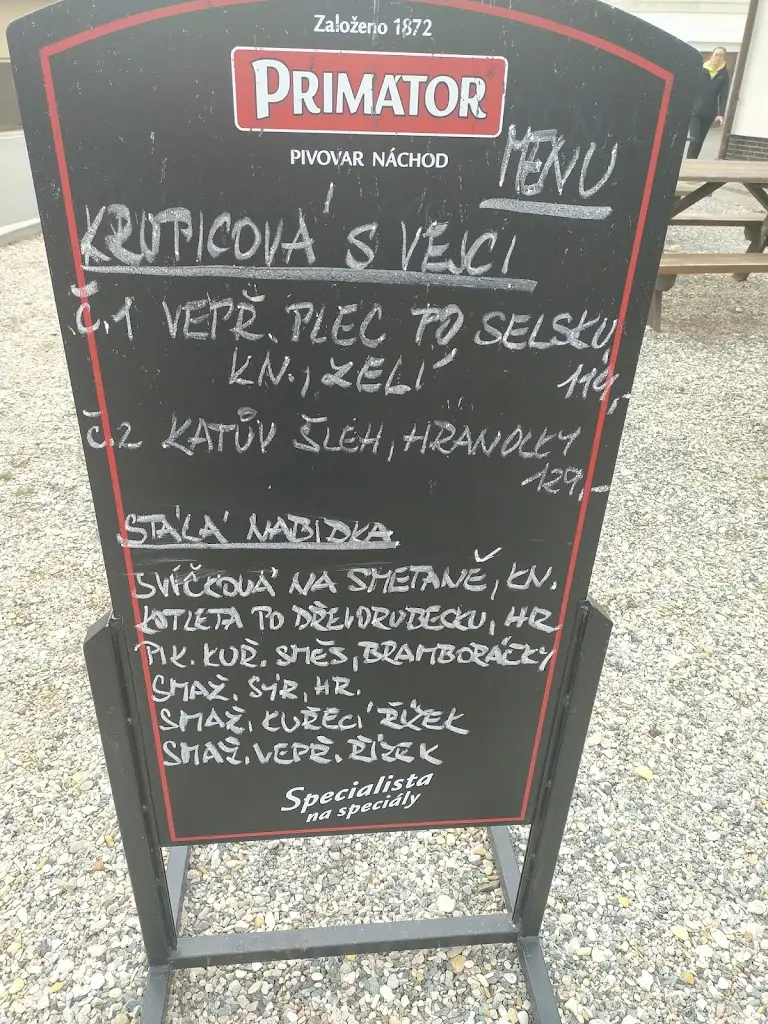 Založeno 1872
PRIMÁTOR
PIVOVAR NÁCHOD
MENU
KRUPICOVÁ S VEJCI
Č.1 VEPŘ. PLEC PO SELSKU
KN., ZELÍ 119,-
Č.2 KATŮV ŠLEH, HRANOLKY
129,-
STÁLÁ NABÍDKA
SVÍČKOVÁ NA SMETANĚ, KN.
KOTLETA PO DŘEVORUBECKU, HR
PIK. KUŘ. SMĚS, BRAMBORÁČKY
SMAŽ. SÝR, HR.
SMAŽ. KUŘECÍ ŘÍZEK
SMAŽ. VEPŘ. ŘÍZEK
Specialista
na speciály